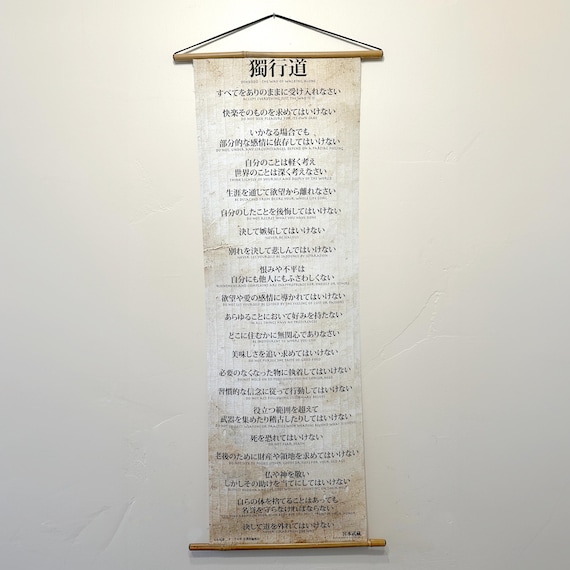 獨行道
すべてをありのままに受け入れなさい
ACCEPT EVERYTHING JUST THE WAY IT IS
快楽そのものを求めてはいけない
DO NOT SEEK PLEASURE FOR ITS OWN SAKE
いかなる場合でも
部分的な感情に依存してはいけない
DO NOT, UNDER ANY CIRCUMSTANCES, DEPEND ON A PARTIAL FEELING
自分のことは軽く考え
世界のことは深く考えなさい
THINK LIGHTLY OF YOURSELF AND DEEPLY OF THE WORLD
生涯を通じて欲望から離れなさい
BE DETACHED FROM DESIRE YOUR WHOLE LIFE LONG
自分のしたことを後悔してはいけない
DO NOT REGRET WHAT YOU HAVE DONE
決して嫉妬してはいけない
NEVER BE JEALOUS
別れを決して悲しんではいけない
NEVER LET YOURSELF BE SADDENED BY SEPARATION
恨みや不平は
自分にも他人にもふさわしくない
欲望や愛の感情に導かれてはいけない
あらゆることにおいて好みを持たない
IN ALL THINGS HAVE NO PREFERENCES
どこに住むかに無関心でありなさい
BE INDIFFERENT TO WHERE YOU LIVE
美味しさを追い求めてはいけない
DO NOT PURSUE THE TASTE OF GOOD FOOD
必要のなくなった物に執着してはいけない
習慣的な信念に従って行動してはいけない
DO NOT ACT FOLLOWING CUSTOMARY BELIEFS
役立つ範囲を超えて
武器を集めたり稽古したりしてはいけない
死を恐れてはいけない
DO NOT FEAR DEATH
老後のために財産や領地を求めてはいけない
仏や神を敬い
しかしその助けを当てにしてはいけない
自らの体を捨てることはあっても
名誉を守らなければならない
決して道を外れてはいけない
宮本武蔵